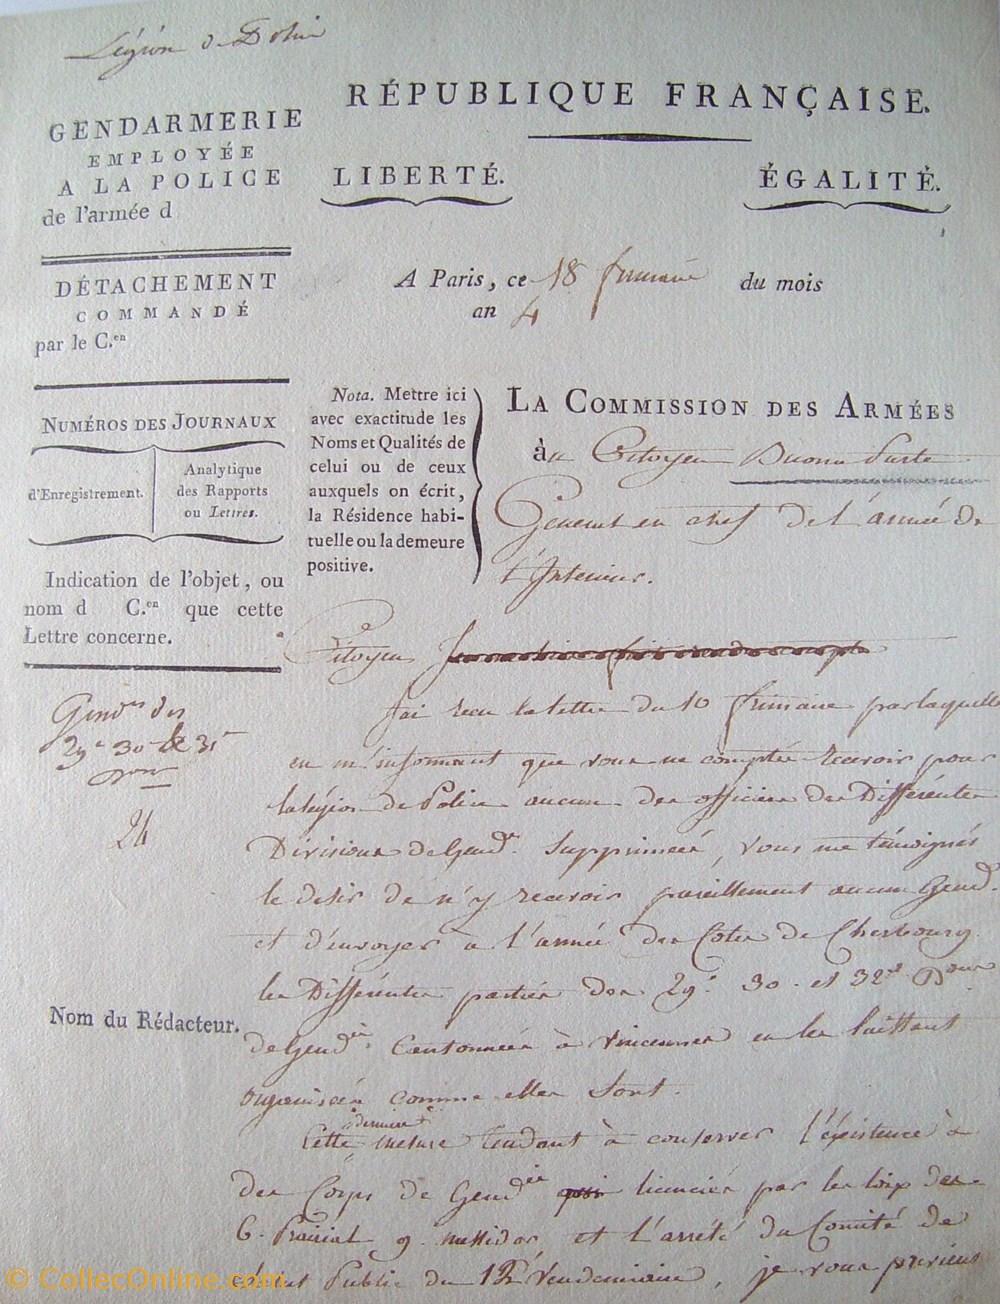 Légion de Police
RÉPUBLIQUE FRANÇAISE.
LIBERTÉ.
ÉGALITÉ.
GENDARMERIE
EMPLOYÉE
A LA POLICE
de l'armée d
DÉTACHEMENT
COMMANDÉ
par le C.en
A Paris, ce 18 frimaire du mois
an 4
NUMÉROS DES JOURNAUX
d'Enregistrement.
Analytique
des Rapports
ou Lettres.
Indication de l'objet, ou
nom d C.en que cette
Lettre concerne.
Nota. Mettre ici
avec exactitude les
Noms et Qualités de
celui ou de ceux
auxquels on écrit,
la Résidence habi-
tuelle ou la demeure
positive.
LA COMMISSION DES ARMÉES
àu Citoyen Buona Parte
General en chef de l'armée de
l'Interieur.
Gend.es des
29.e 30 & 31
Don
24
Nom du Rédacteur.
Citoyen
J'ai recu la lettre du 10 frimaire par laquelle
en m'informant que vous ne comptéz recevoir pour
la légion de Police aucun des officiers des Différentes
Divisions de Gend.e supprimées, vous me témoignés
le desir de n'y recevoir pareillement aucun Gend.
et d'envoyer à l'armée des Cotes de Cherbourg
les Différentes parties des 29.e 30. et 32.e Dons
de Gend.ie Cantonnées à Vincennes en les laissant
organisées comme elles sont.
Cette derniere mesure tendant à conserver l'éxistence à
des Corps de Gend.ie licenciés par les loix des
6. Prairial 9. messidor, et l'arrêté du Comité de
salut Public du 12 Vendemiaire, je vous previens
© CollecOnline.com